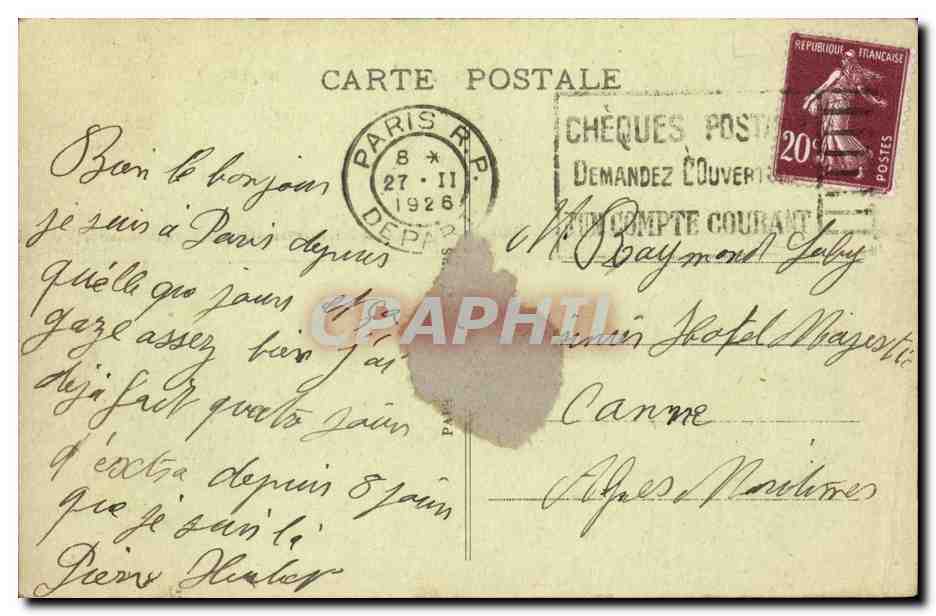 CARTE POSTALE
PARIS R.P.
8 *
27 · II
1926
DEPART
CHÈQUES POSTA
DEMANDEZ L'OUVERT
D'UN COMPTE COURANT
REPUBLIQUE FRANÇAISE
20 c
POSTES
Bien le bonjour
je suis à Paris depuis
quélle que jours et ça
gaze assez bien j'ai
deja fait quatr jours
d'extra depuis 8 jours
que je suis là
Pierre
M. Raymond
Hotel Majestic
Canne
Alpes Maritimes
PAR
CPAPHIL